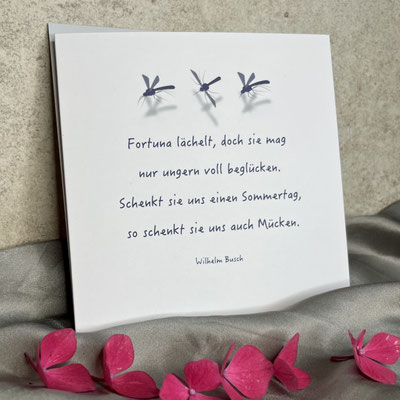 Fortuna lächelt, doch sie mag
nur ungern voll beglücken.
Schenkt sie uns einen Sommertag,
so schenkt sie uns auch Mücken.
Wilhelm Busch